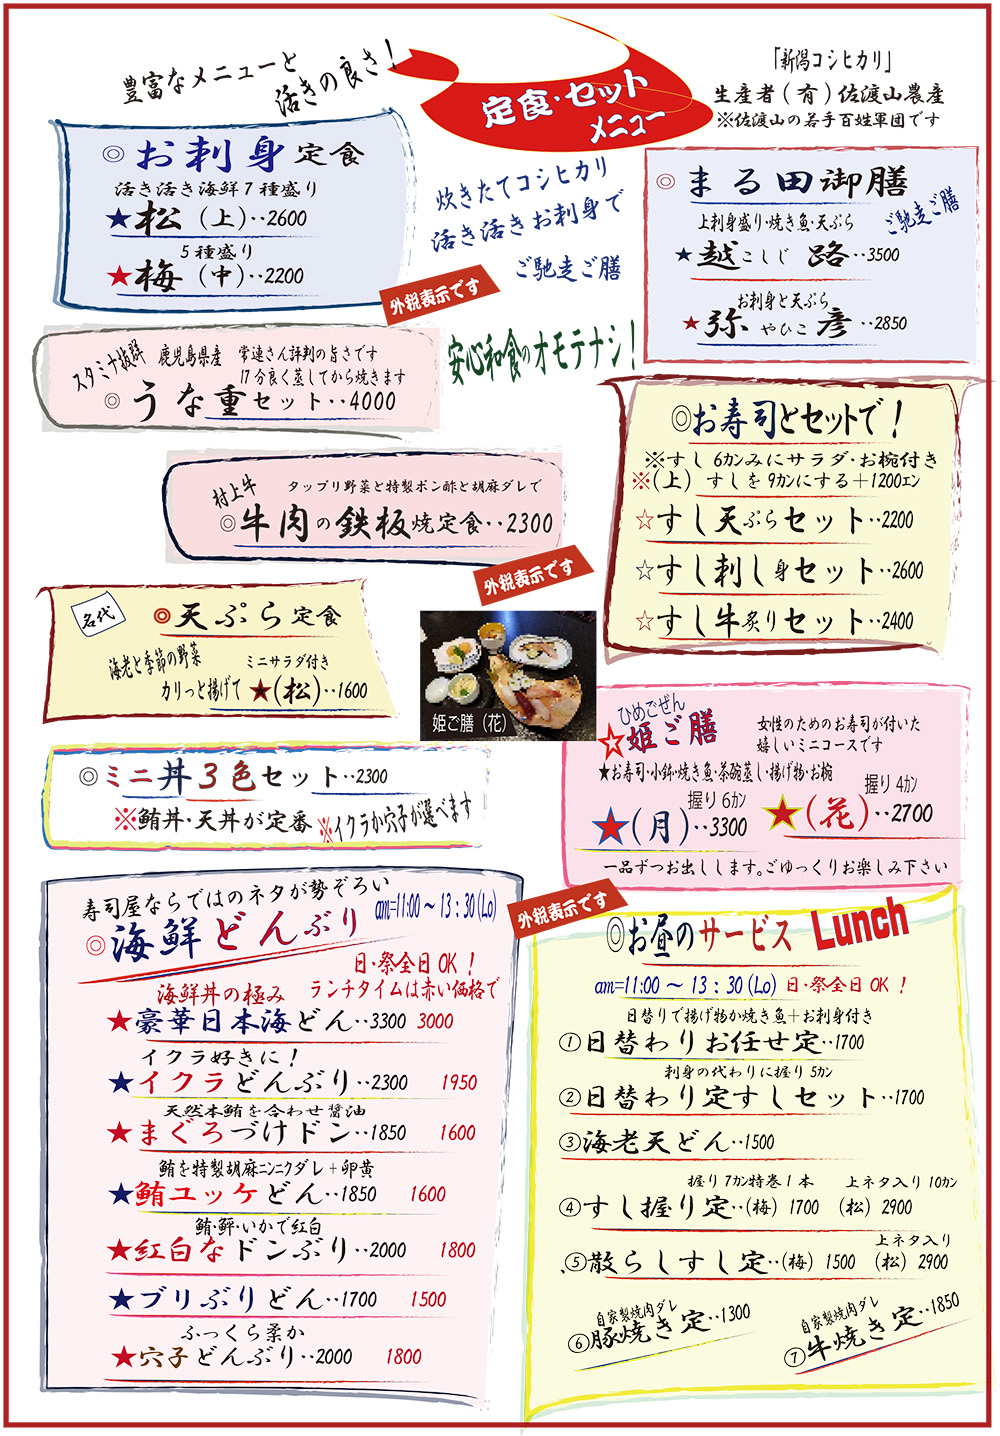 豊富なメニューと
活きの良さ！
定食・セット
メニュー
「新潟コシヒカリ」
生産者(有)佐渡山農産
※佐渡山の若手百姓軍団です
◎お刺身定食
活き活き海鮮７種盛り
★松(上)‥2600
５種盛り
★梅(中)‥2200
炊きたてコシヒカリ
活き活きお刺身で
ご馳走ご膳
外税表示です
安心和食のオモテナシ！
◎まる田御膳
上刺身盛り・焼き魚・天ぷら
ご馳走ご膳
★越こしじ路‥3500
お刺身と天ぷら
★弥やひこ彦‥2850
スタミナ抜群
鹿児島県産
常連さん評判の旨さです
17分良く蒸してから焼きます
◎うな重セット‥4000
村上牛
タップリ野菜と特製ポン酢と胡麻ダレで
◎牛肉の鉄板焼定食‥2300
◎お寿司とセットで！
※すし6カンみにサラダ・お椀付き
※(上)すしを9カンにする＋1200エン
☆すし天ぷらセット‥2200
☆すし刺し身セット‥2600
☆すし牛炙りセット‥2400
外税表示です
名代
◎天ぷら定食
海老と季節の野菜
ミニサラダ付き
カリっと揚げて
★(松)‥1600
姫ご膳（花）
ひめごぜん
☆姫ご膳
女性のためのお寿司が付いた
嬉しいミニコースです
★お寿司・小鉢・焼き魚・茶碗蒸し・揚げ物・お椀
握り6カン
★(月)‥3300
握り4カン
★(花)‥2700
一品ずつお出しします。ごゆっくりお楽しみ下さい
◎ミニ丼３色セット‥2300
※鮪丼・天丼が定番
※イクラか穴子が選べます
寿司屋ならではのネタが勢ぞろい
◎海鮮どんぶり
am=11:00～13：30(Lo)
日・祭全日OK！
海鮮丼の極み
ランチタイムは赤い価格で
★豪華日本海どん‥3300 3000
イクラ好きに！
★イクラどんぶり‥2300 1950
天然本鮪を合わせ醤油
★まぐろづけドン‥1850 1600
鮪を特製胡麻ニンニクダレ＋卵黄
★鮪ユッケどん‥1850 1600
鮪・鮃・いかで紅白
★紅白なドンぶり‥2000 1800
★ブリぶりどん‥1700 1500
ふっくら柔か
★穴子どんぶり‥2000 1800
外税表示です
◎お昼のサービス Lunch
am=11:00～13：30(Lo) 日・祭全日OK！
日替りで揚げ物か焼き魚＋お刺身付き
①日替わりお任せ定‥1700
刺身の代わりに握り5カン
②日替わり定すしセット‥1700
③海老天どん‥1500
握り7カン特巻１本 上ネタ入り10カン
④すし握り定‥(梅) 1700 (松) 2900
上ネタ入り
⑤散らしすし定‥(梅) 1500 (松) 2900
自家製焼肉ダレ
⑥豚焼き定‥1300
自家製焼肉ダレ
⑦牛焼き定‥1850